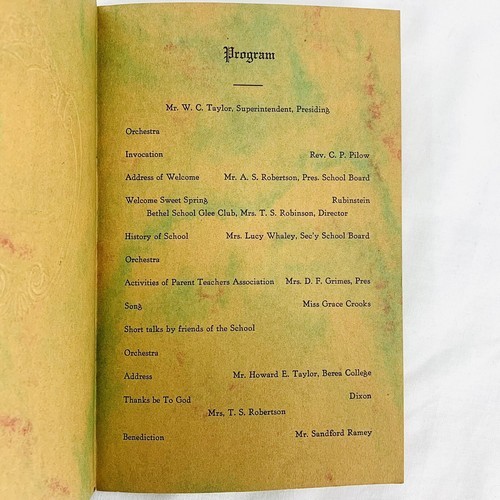 Program
Mr. W. C. Taylor, Superintendent, Presiding
Orchestra
Invocation Rev. C. P. Pilow
Address of Welcome Mr. A. S. Robertson, Pres. School Board
Welcome Sweet Spring Rubinstein
Bethel School Glee Club, Mrs. T. S. Robinson, Director
History of School Mrs. Lucy Whaley, Sec'y School Board
Orchestra
Activities of Parent Teachers Association Mrs. D. F. Grimes, Pres
Song Miss Grace Crooks
Short talks by friends of the School
Orchestra
Address Mr. Howard E. Taylor, Berea College
Thanks be To God Dixon
Mrs, T. S. Robertson
Benediction Mr. Sandford Ramey